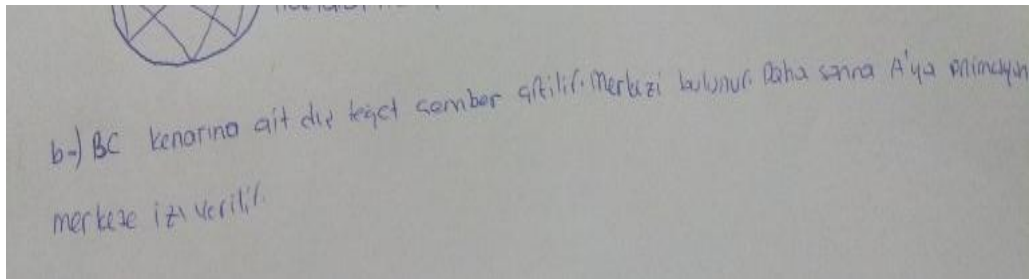 b-) BC kenarına ait dış teğet çember çizilir. Merkezi bulunur. Daha sonra A'ya animasyon
merkeze izi verilir.